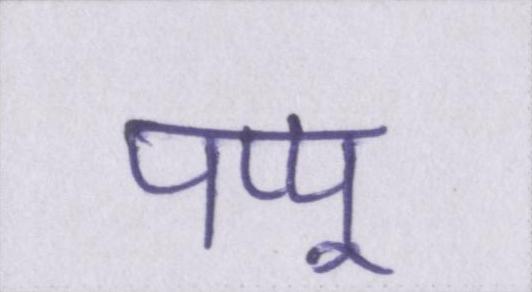 पप्पू